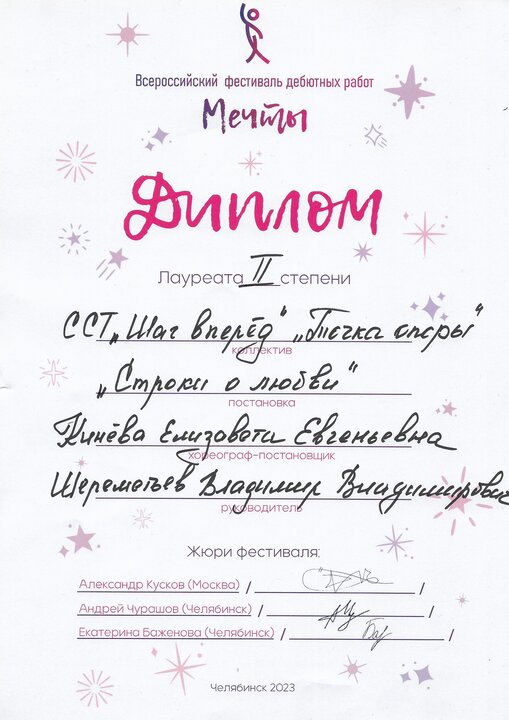 Всероссийский фестиваль дебютных работ
Мечты
Диплом
Лауреата II степени
ССТ „Шаг вперёд" „Точка опоры"
коллектив
„Строки о любви"
постановка
Кинёва Елизавета Евгеньевна
хореограф-постановщик
Шереметьев Владимир Владимирович
руководитель
Жюри фестиваля:
Александр Кусков (Москва) / /
Андрей Чурашов (Челябинск) / /
Екатерина Баженова (Челябинск) / /
Челябинск 2023